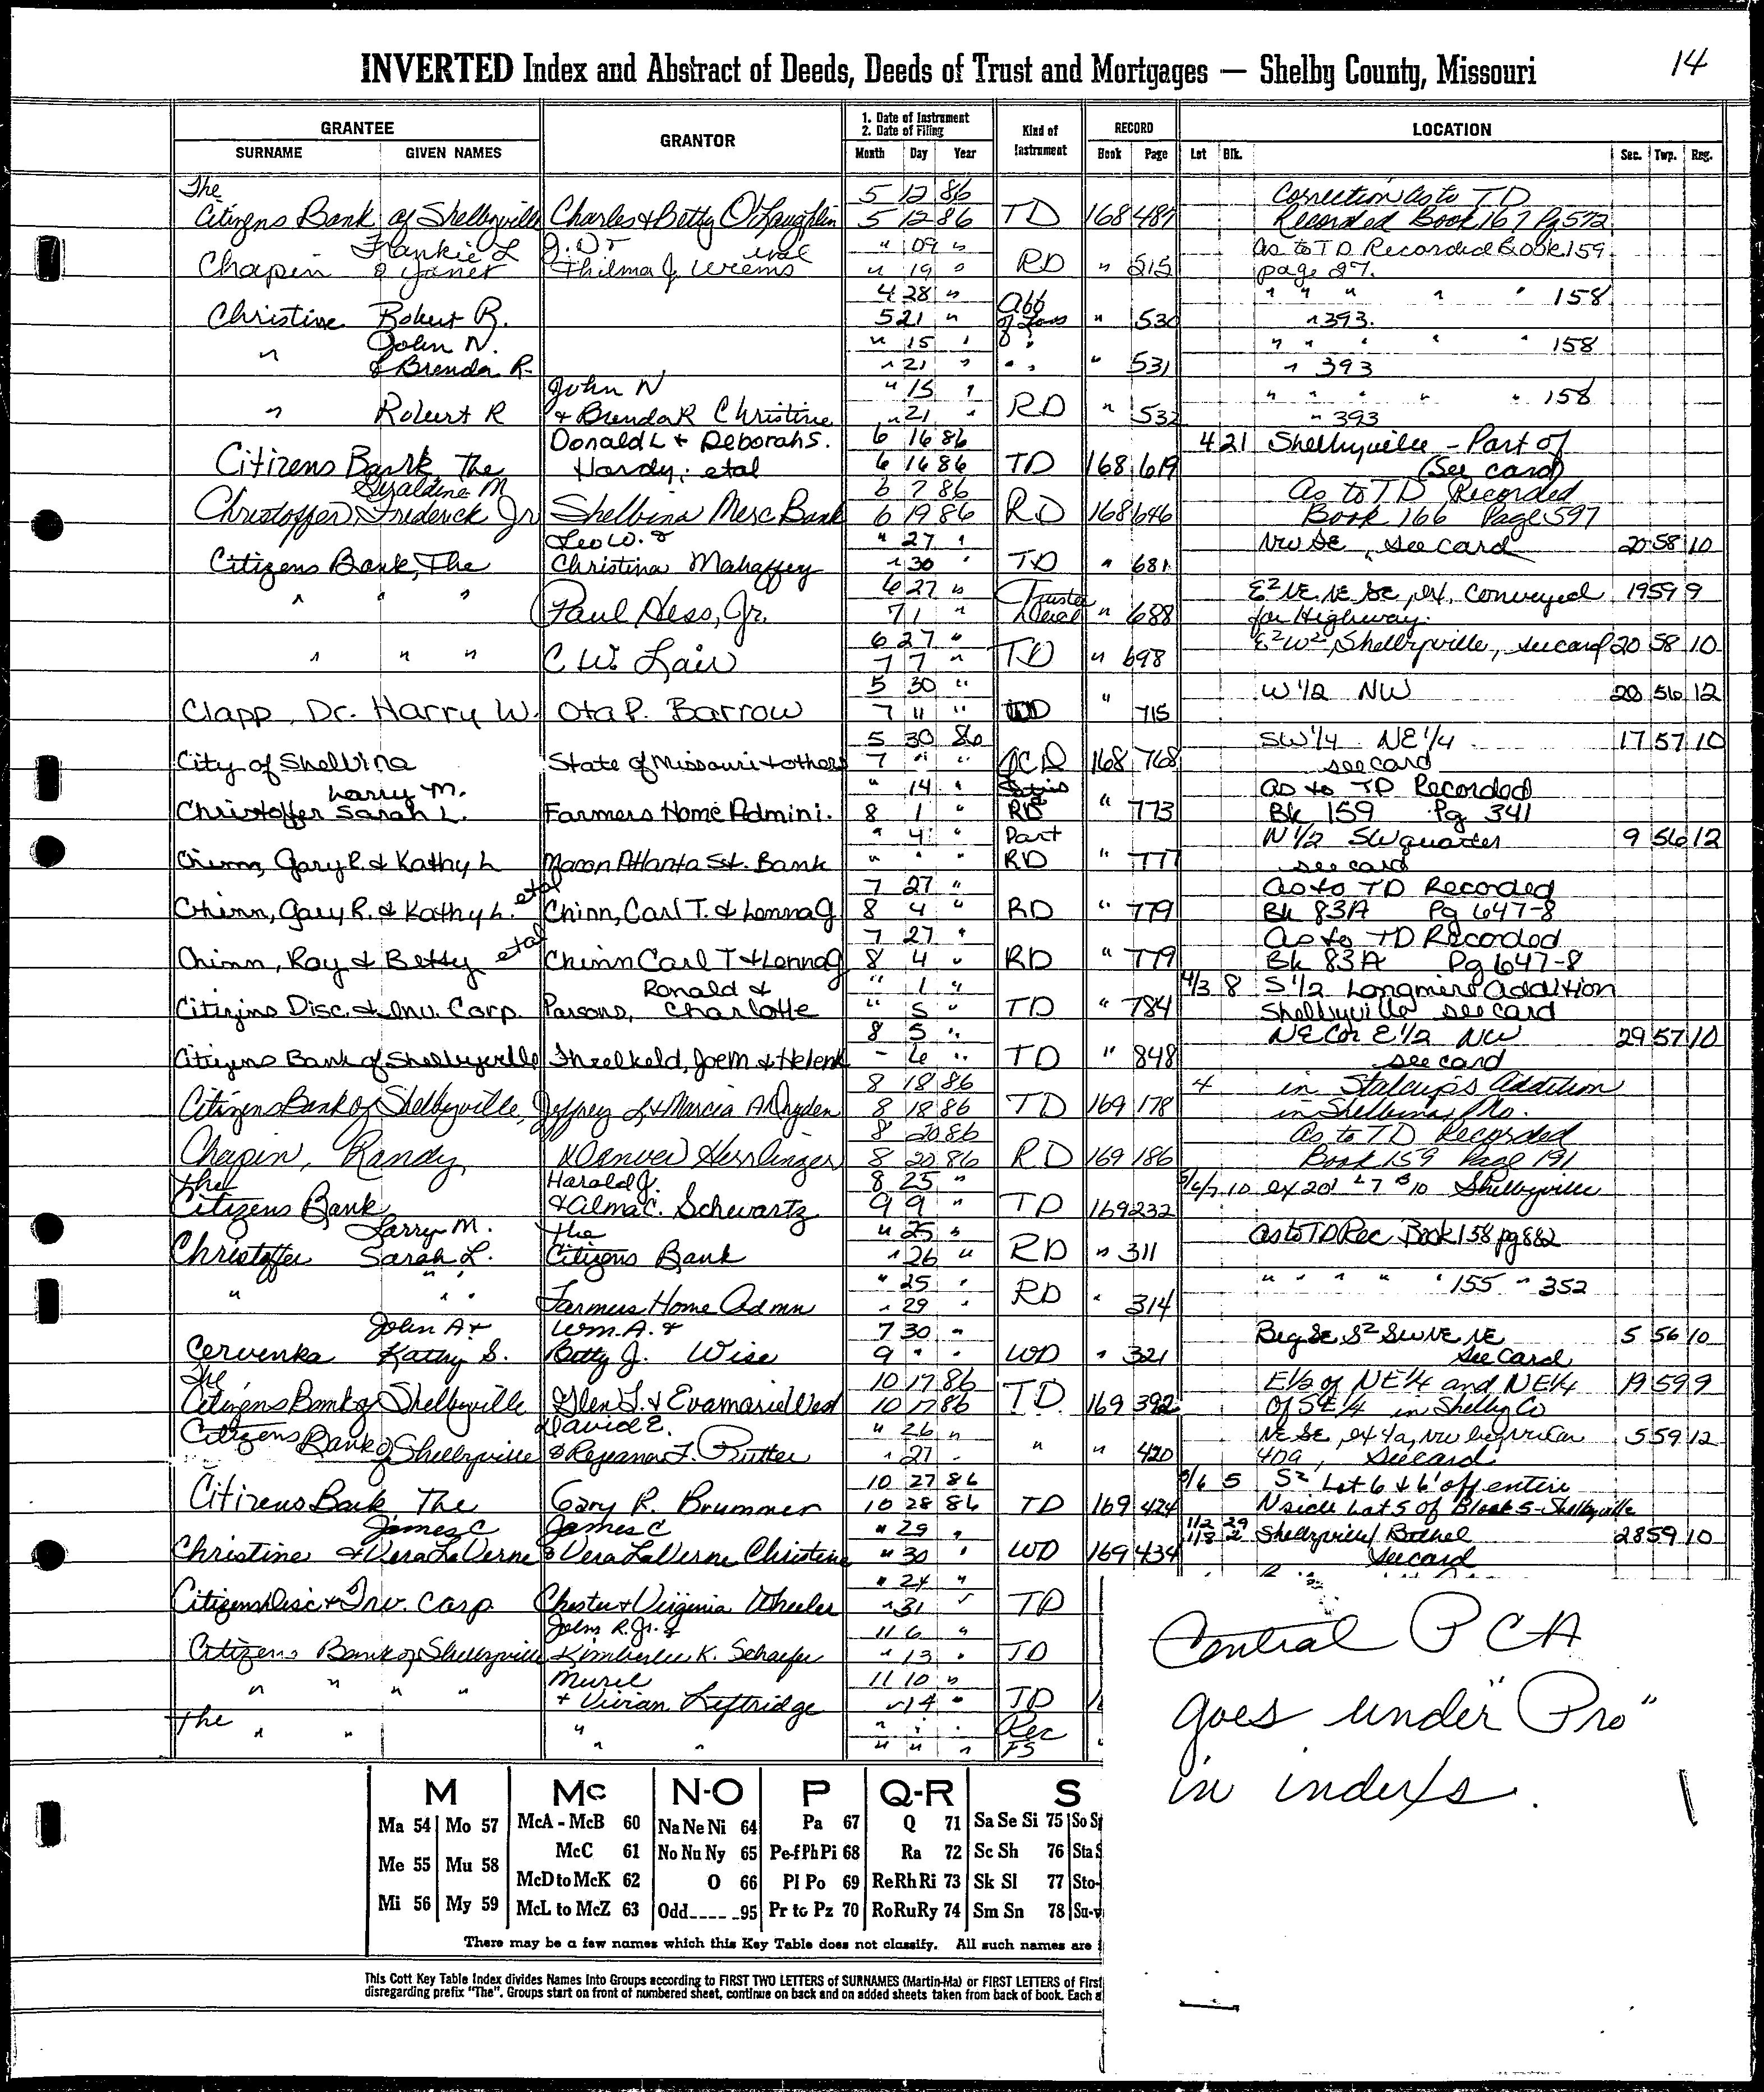 INVERTED Index and Abstract of Deeds, Deeds of Trust and Mortgages — Shelby County, Missouri 14
GRANTEE GRANTOR 1. Date of Instrument 2. Date of Filing Kind of Instrument RECORD LOCATION
SURNAME GIVEN NAMES Month Day Year Book Page Lot Blk. Sec. Twp. Reg.
The 5 12 86 Correction as to TD
Citizens Bank of Shelbyville Charles & Betty O'Laughlin 5 12 86 TD 168 487 Recorded Book 167 Pg 572
Frankie L J.D. & " 09 " as to TD Recorded Book 159
Chapin & Janet Thelma J. Weems " 19 " RD " 515 page 27.
4 28 " " " " " " 158
Christine Robert R. 5 21 " of Loss " 530 " 393.
John N. " 15 " " " " " " 158
" & Brenda R. " 21 " " " " 531 " 393
John N " 15 " " " " " " 158
" Robert R & Brenda R Christine " 21 " RD " 532 " 393
Donald L & Deborah S. 6 16 86 4 21 Shelbyville - Part of
Citizens Bank, The Hardy, etal 6 16 86 TD 168 619 (See card)
Geraldine M 6 7 86 As to TD Recorded
Christoffer, Frederick Jr Shelbina Merc Bank 6 19 86 RD 168 646 Book 166 Page 597
Leo W. & " 27 " NW SE, see card 20 58 10
Citizens Bank, The Christina Mahaffey " 30 " TD " 681
" " " 6 27 " Trustee E² NE. NE SE, ex. conveyed 19 59 9
Paul Hess, Jr. 7 1 " Deed " 688 for Highway.
6 27 " E² W², Shelbyville, see card 20 58 10
" " " C.W. Lair 7 7 " TD " 698
5 30 " W 1/2 NW 20 56 12
Clapp, Dr. Harry W. Ota P. Barrow 7 11 " TD " 715
5 30 86 SW 1/4 NE 1/4 17 57 10
City of Shelbina State of Missouri & others 7 " " QCD 168 768 see card
Larry M. " 14 " as to TD Recorded
Christoffer Sarah L. Farmers Home Admini. 8 1 " RD " 773 Bk 159 Pg 341
" 4 " Part N 1/2 SW quarter 9 56 12
Chinn, Gary R. & Kathy L Macon Atlanta St. Bank " " " RD " 777 see card
etal 7 27 " As to TD Recorded
Chinn, Gary R. & Kathy L. Chinn, Carl T. & Lenna G 8 4 " RD " 779 Bk 83A Pg 647-8
etal 7 27 " As to TD Recorded
Chinn, Roy & Betty Chinn Carl T & Lenna G 8 4 " RD " 779 Bk 83A Pg 647-8
Ronald & " 1 " 4/3 8 S 1/2 Longmire Addition
Citizens Disc. & Inv. Corp. Parsons, Charlotte " 5 " TD " 784 Shelbyville see card
8 5 " NE Cor E 1/2 NW 29 57 10
Citizens Bank of Shelbyville Threlkeld, Joe M & Helen K - 6 " TD " 848 see card
8 18 86 4 in Stalcup's Addition
Citizens Bank of Shelbyville, Jeffrey L & Marcia A Dryden 8 18 86 TD 169 178 in Shelbina, Mo.
8 20 86 As to TD Recorded
Chapin, Randy Denver Herslinger 8 20 86 RD 169 186 Book 159 Page 191
The Harold J. 8 25 " 5/6/7 10 ex 20' Shelbyville
Citizens Bank & Alma C. Schwartz 9 9 " TD 169 232
Larry M. The " 25 " as to TD Rec Book 158 pg 882
Christoffer Sarah L. Citizens Bank " 26 " RD " 311
" " " " 25 " " " " " " 155 " 352
Farmers Home Admn " 29 " RD " 314
John A & Wm. A. & 7 30 " Beg SE S² SW NE NE 5 56 10
Cervenka Kathy S. Betty J. Wise 9 " " WD " 321 See Card
The 10 17 86 E 1/2 of NE 1/4 and NE 1/4 19 59 9
Citizens Bank of Shelbyville Glen L. & Evamarie West 10 17 86 TD 169 392 Of SE 1/4 in Shelby Co
Citizens David E. " 26 " NE SE, ex 4a, NW 5 59 12
Bank of Shelbyville & Rejeana F. Rutter " 27 " " " 420 40a, see card
10 27 86 5/6 5 S² Lot 6 & 6' off entire
Citizens Bank The Gary R. Brummer 10 28 86 TD 169 424 N side Lot 5 of Block 5 - Shelbyville
James C James C " 29 " 1/2 29 1/8 2 Shelbyville / Bethel 28 59 10
Christine & Vera LaVerne & Vera LaVerne Christine " 30 " WD 169 434 see card
" 24 "
Citizens Disc & Inv. Corp Chester & Virginia Wheeler " 31 " TD
John R. Jr. & 11 6 "
Citizens Bank of Shelbyville Kimberlee K. Schaefer " 13 " TD
Murel 11 10 "
" " " " & Vivian Leftridge " 14 " TD
The " " " " " " Rec
" " " " " FS
Central PCA
goes under "Pro"
in index/s.
M Mc N-O P Q-R S
Ma 54 Mo 57 McA - McB 60 Na Ne Ni 64 Pa 67 Q 71 Sa Se Si 75 So
Me 55 Mu 58 McC 61 No Nu Ny 65 Pe-f Ph Pi 68 Ra 72 Sc Sh 76 Sta
McD to McK 62 O 66 Pl Po 69 Re Rh Ri 73 Sk Sl 77 Sto-
Mi 56 My 59 McL to McZ 63 Odd---- 95 Pr to Pz 70 Ro Ru Ry 74 Sm Sn 78 Su-
There may be a few names which this Key Table does not classify. All such names are
This Cott Key Table Index divides Names Into Groups according to FIRST TWO LETTERS of SURNAMES (Martin-Ma) or FIRST LETTERS of First
disregarding prefix "The". Groups start on front of numbered sheet, continue on back and on added sheets taken from back of book. Each a